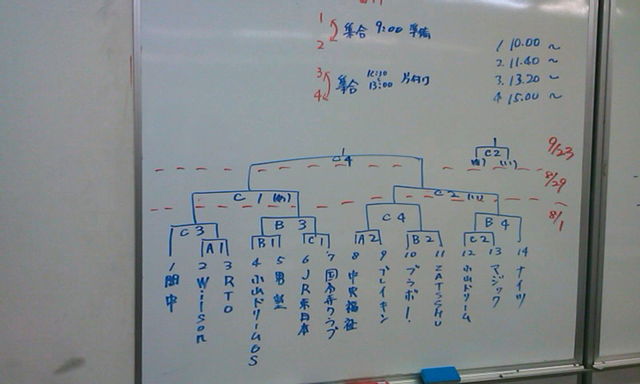 1
2
集合 9:00 準備
3
4
集合 13:00 片付け
1. 10.00 ～
2. 11.40 ～
3. 13.20 ～
4. 15.00 ～
1
C2
9/23
C4
8/29
C1
C2
8/1
C3
B3
C4
B4
A1
B1
C1
A2
B2
C2
1
2 Wilson
3 RTO
4 小山ドリームOS
5
6 JR東日本
7
8 中央福祉
9 ブレイキン
10 ブラボー!
11 ZATSSHU
12 小山ドリーム
13 マジック
14 ナイツ